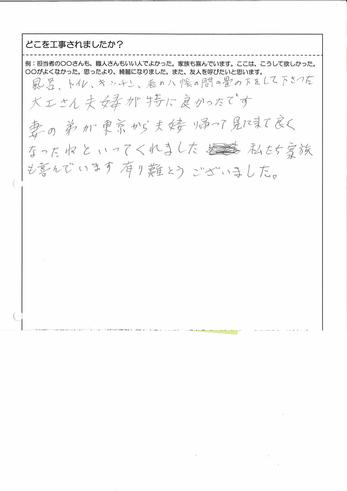 どこを工事されましたか？
例：担当者の〇〇さんも、職人さんもいい人でよかった。家族も喜んでいます。ここは、こうして欲しかった。
〇〇がよくなかった。思ったより、綺麗になりました。また、友人を呼びたいと思います。
風呂、トイレ、キッチン、 の八帖の間の畳の下をして下さった
大工さん夫婦が特に良かったです
妻の弟が東京から夫婦帰って見に来て良く
なったねといってくれました 私たち家族
も喜んでいます 有り難とうございました。